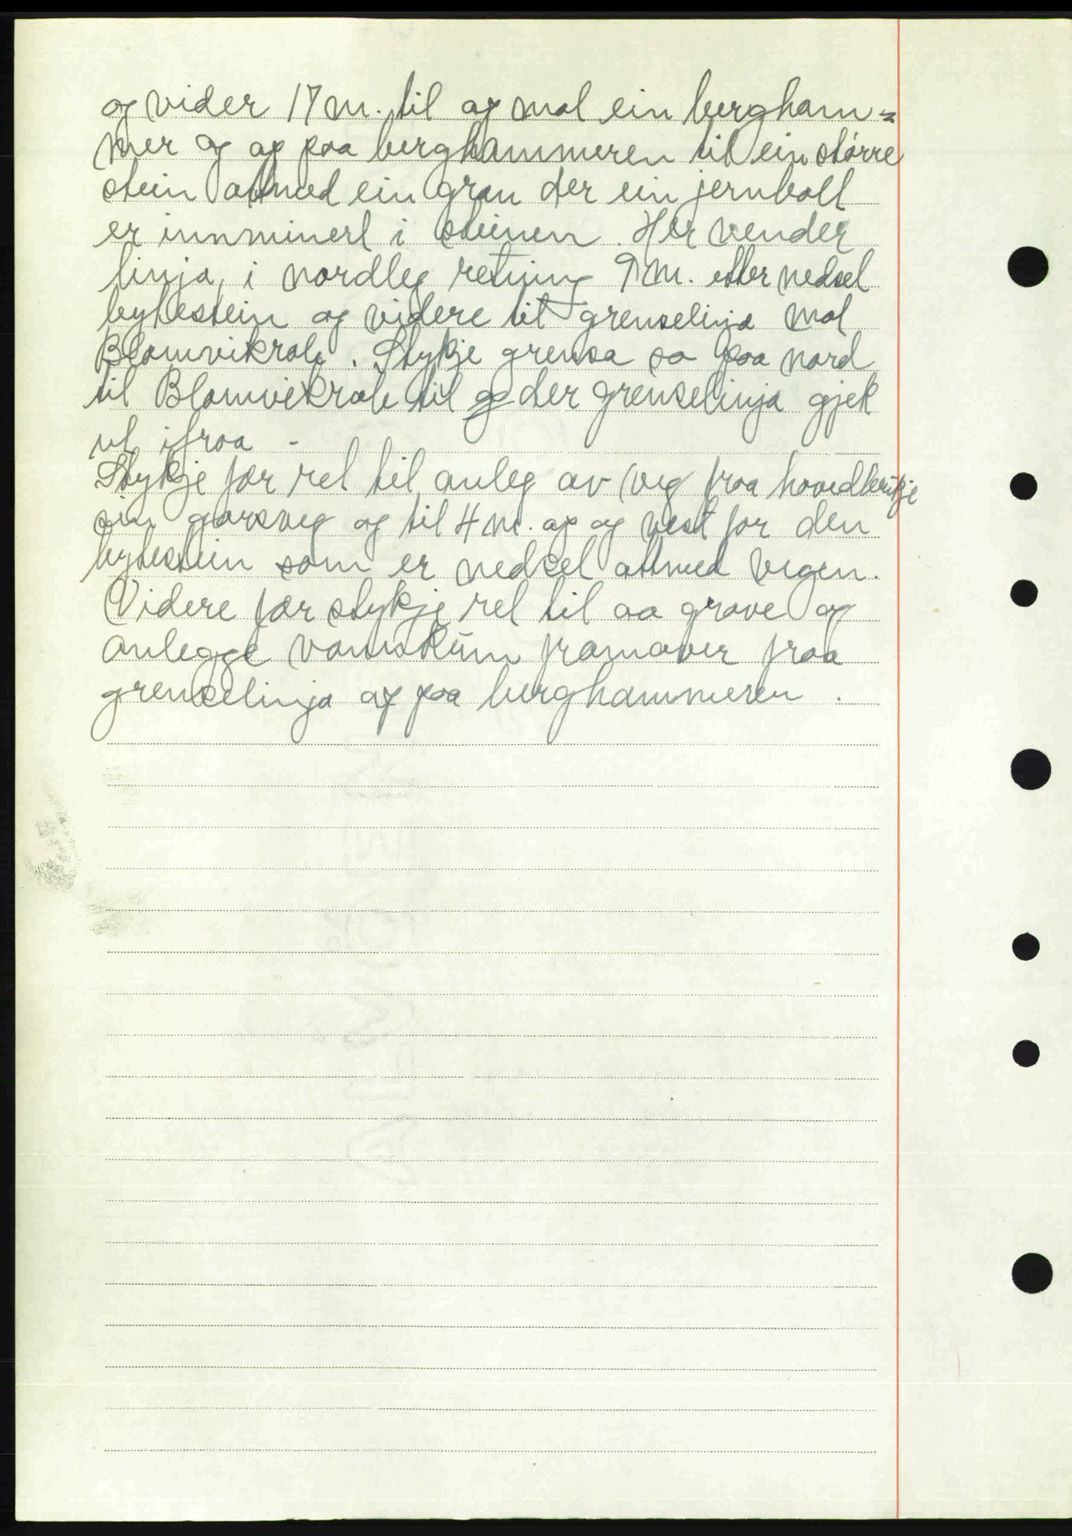 og vider 17 m. til og mot ein bergham=
mer og op paa berghammeren til ein større
stein attmed ein gran der ein jernbolt
er innminert i steinen. Her vender
linja i nordleg retning 9 m. etter nedset
bytestein og videre til grenselinja mot
Blomvikrab. Stykje grensa so paa nord
til Blomvikrab til der grenselinja gjek
ut ifraa -
Stykje før ret til anleg av veg fraa
garsveg og til 4 m. op og vest for den
bytestein som er nedset attmed vegen.
Videre før stykje ret til aa grave og
anlegge vannkum framover fraa
grenselinja op paa berghammeren.